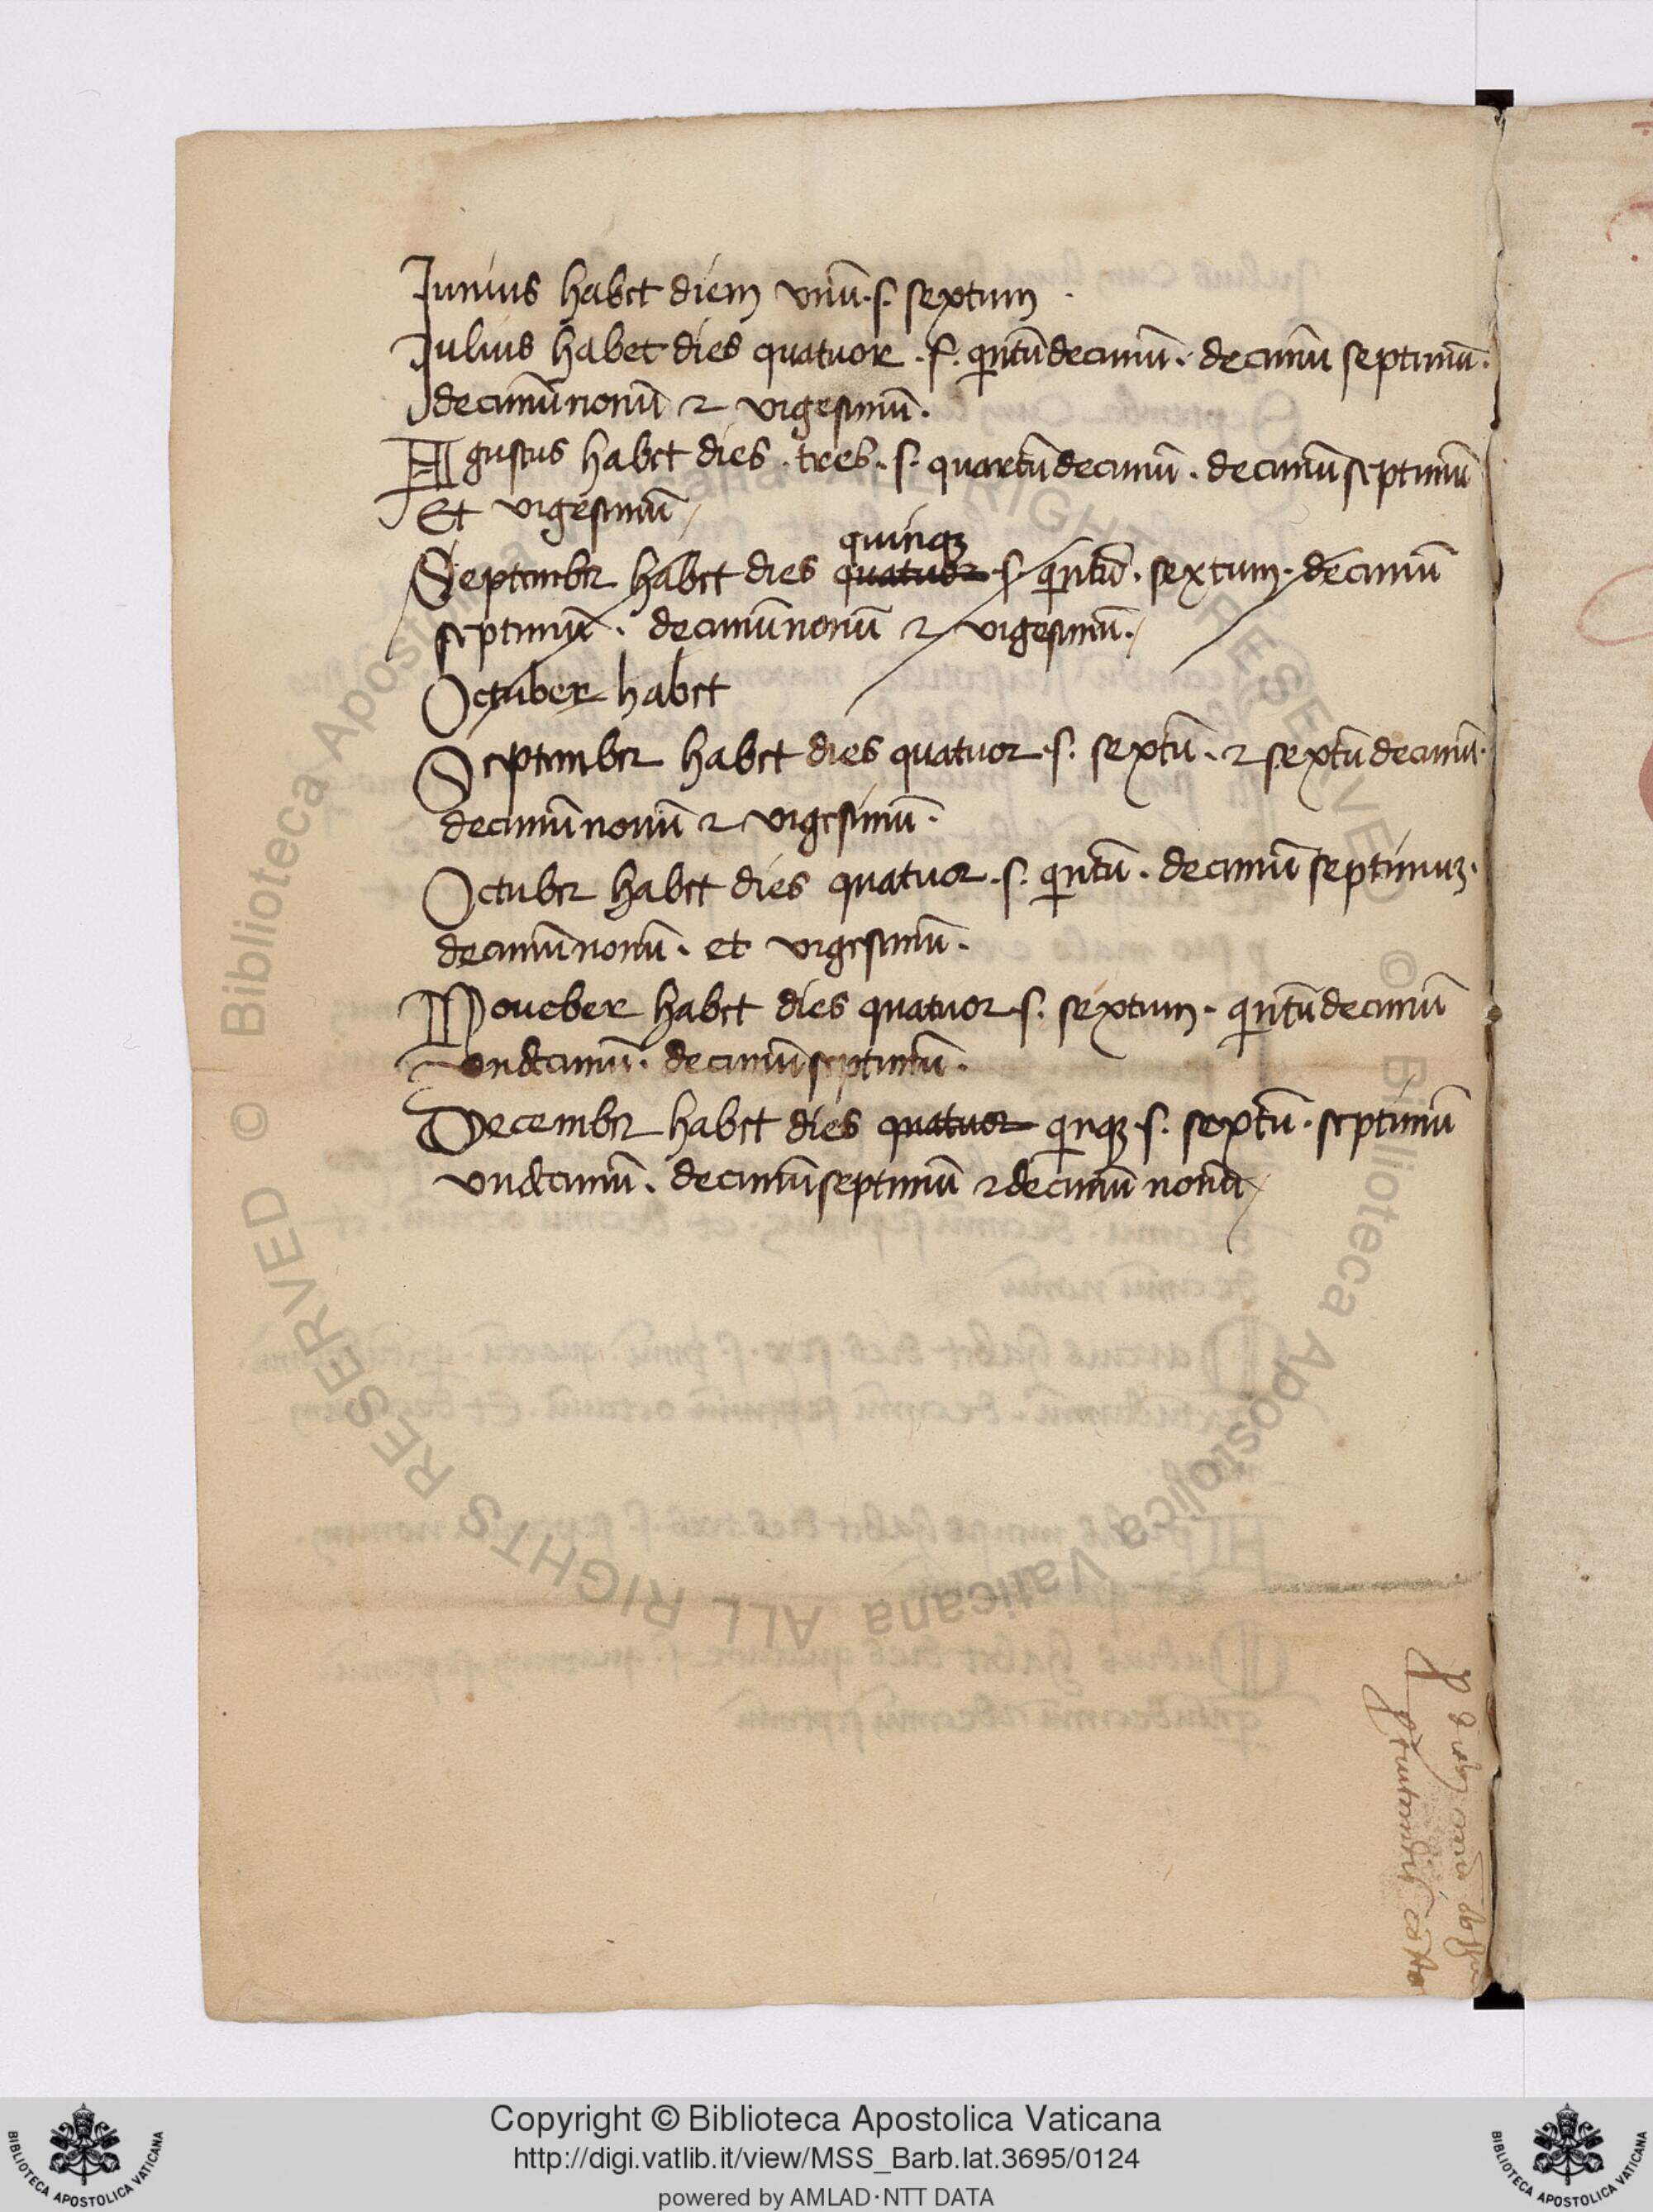 Iunius habet diem vnū .s. sextum
Iulius habet dies quatuor .s. qintūdecimū. decimū septimū.
decimūnonū et vigesimū.
Agustus habet dies .tres. s. quartūdecimū. decimūseptimū
Et vigesimū
quinqꝫ
September habet dies quatuor .s. qintū. sextum. decimū
septimū. decimūnonū et vigesimū.
Octuber habet
September habet dies quatuor .s. sextū. et sextūdecimū.
decimūnonū et vigesimū.
Octuber habet dies quatuor .s. qintū. decimūseptimuꝫ.
decimūnonū. et vigesimū.
Noueber habet dies quatuor .s. sextum. qintūdecimū
vndecimū. decimūseptimū.
December habet dies quatuor qinqꝫ .s. sextū. septimū
vndecimū. decimūseptimū et decimū nonū
© Biblioteca Apostolica Vaticana ALL RIGHTS RESERVED © Biblioteca Apostolica Vaticana ALL RIGHTS RESERVED
Copyright © Biblioteca Apostolica Vaticana
http://digi.vatlib.it/view/MSS_Barb.lat.3695/0124
powered by AMLAD·NTT DATA
BIBLIOTECA APOSTOLICA VATICANA
BIBLIOTECA APOSTOLICA VATICANA